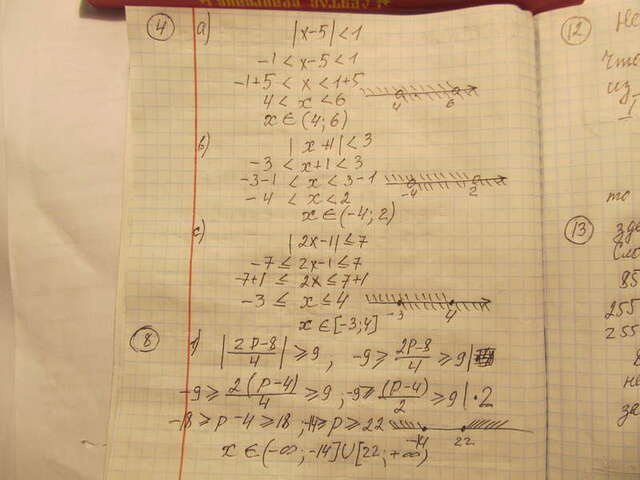 4 а) |x-5| < 1
-1 < x-5 < 1
-1+5 < x < 1+5
4 < x < 6
4 6
x ∈ (4; 6)
в) | x+1| < 3
-3 < x+1 < 3
-3-1 < x < 3-1
-4 2
-4 < x < 2
x ∈ (-4; 2)
с) |2x-1| ≤ 7
-7 ≤ 2x-1 ≤ 7
-7+1 ≤ 2x ≤ 7+1
-3 ≤ x ≤ 4
-3 4
x ∈ [-3; 4]
8 |2p-8/4| ≥ 9, -9 ≥ 2p-8/4 ≥ 9|
-9 ≥ 2(p-4)/4 ≥ 9, -9 ≥ (p-4)/2 ≥ 9 | · 2
-18 ≥ p-4 ≥ 18, -14 ≥ p ≥ 22
-14 22
x ∈ (-∞; -14] ∪ [22; +∞)
12
из
то
13
85
255
255
за